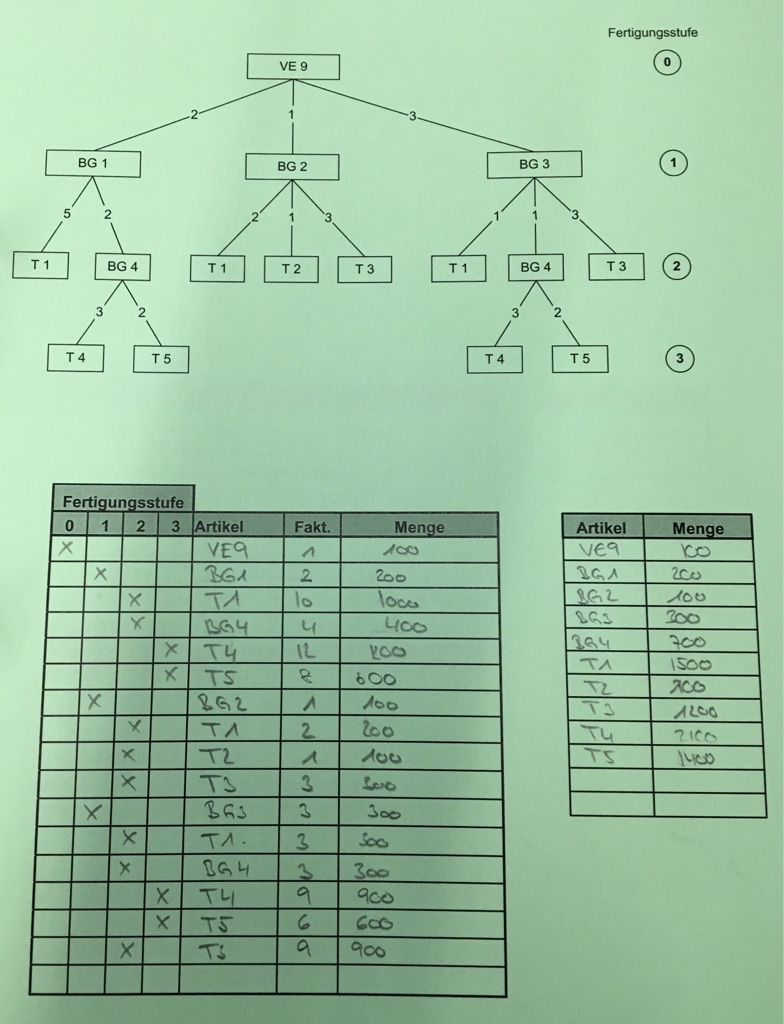 Fertigungsstufe
VE 9 0
2 1 3
BG 1 BG 2 BG 3 1
5 2 2 1 3 1 1 3
T 1 BG 4 T 1 T 2 T 3 T 1 BG 4 T 3 2
3 2 3 2
T 4 T 5 T 4 T 5 3
Fertigungsstufe
0 1 2 3 Artikel Fakt. Menge
X VE9 1 100
X BG1 2 200
X T1 10 1000
X BG4 4 400
X T4 12
X T5 8
X BG2 1 100
X T1 2 200
X T2 1 100
X T3 3 300
X BG3 3 300
X T1. 3 300
X BG4 3 300
X T4 9 900
X T5 6 600
X T3 9 900
Artikel Menge
VE9 100
BG1 200
BG2 100
BG3 300
BG4 700
T1 1500
T2
T3 1200
T4 2100
T5 1400